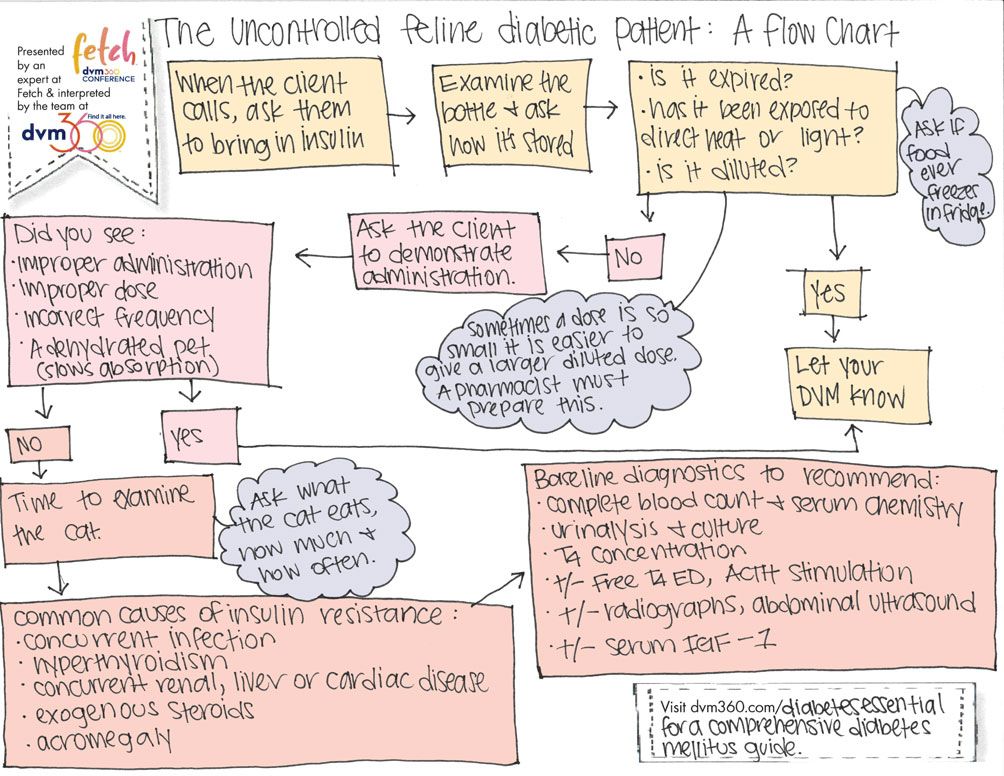 The uncontrolled feline diabetic patient: A flow chart
Presented
by an
expert at
Fetch & interpreted
by the team at
fetch
dvm360
CONFERENCE
Find it all here.
dvm360
When the client
calls, ask them
to bring in insulin
Examine the
bottle & ask
how it's stored
· is it expired?
· has it been exposed to
direct heat or light?
· is it diluted?
Ask if
food
ever
freezes
in fridge.
Yes
Let your
DVM know
No
Ask the client
to demonstrate
administration.
Sometimes a dose is so
small it is easier to
give a larger diluted dose.
A pharmacist must
prepare this.
Did you see:
· improper administration
· improper dose
· incorrect frequency
· A dehydrated pet
(slows absorption)
NO
Yes
Time to examine
the cat.
Ask what
the cat eats,
how much &
how often.
common causes of insulin resistance:
· concurrent infection
· hyperthyroidism
· concurrent renal, liver or cardiac disease
· exogenous steroids
· acromegaly
Baseline diagnostics to recommend:
· complete blood count & serum chemistry
· urinalysis & culture
· T4 concentration
· +/- Free T4 ED, ACTH stimulation
· +/- radiographs, abdominal ultrasound
· +/- serum IGF-1
Visit dvm360.com/diabetesessential
for a comprehensive diabetes
mellitus guide.